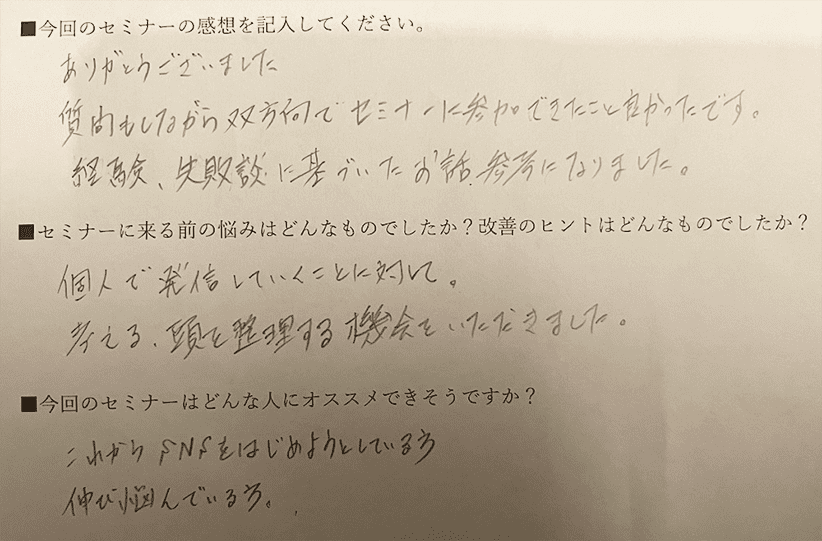 ■今回のセミナーの感想を記入してください。
ありがとうございました
質問もしながら双方向でセミナーに参加できたこと良かったです。
経験、失敗談に基づいたお話、参考になりました。
■セミナーに来る前の悩みはどんなものでしたか？改善のヒントはどんなものでしたか？
個人で発信していくことに対して。
考える、頭を整理する機会をいただきました。
■今回のセミナーはどんな人にオススメできそうですか？
これからSNSをはじめようとしている方
伸び悩んでいる方。